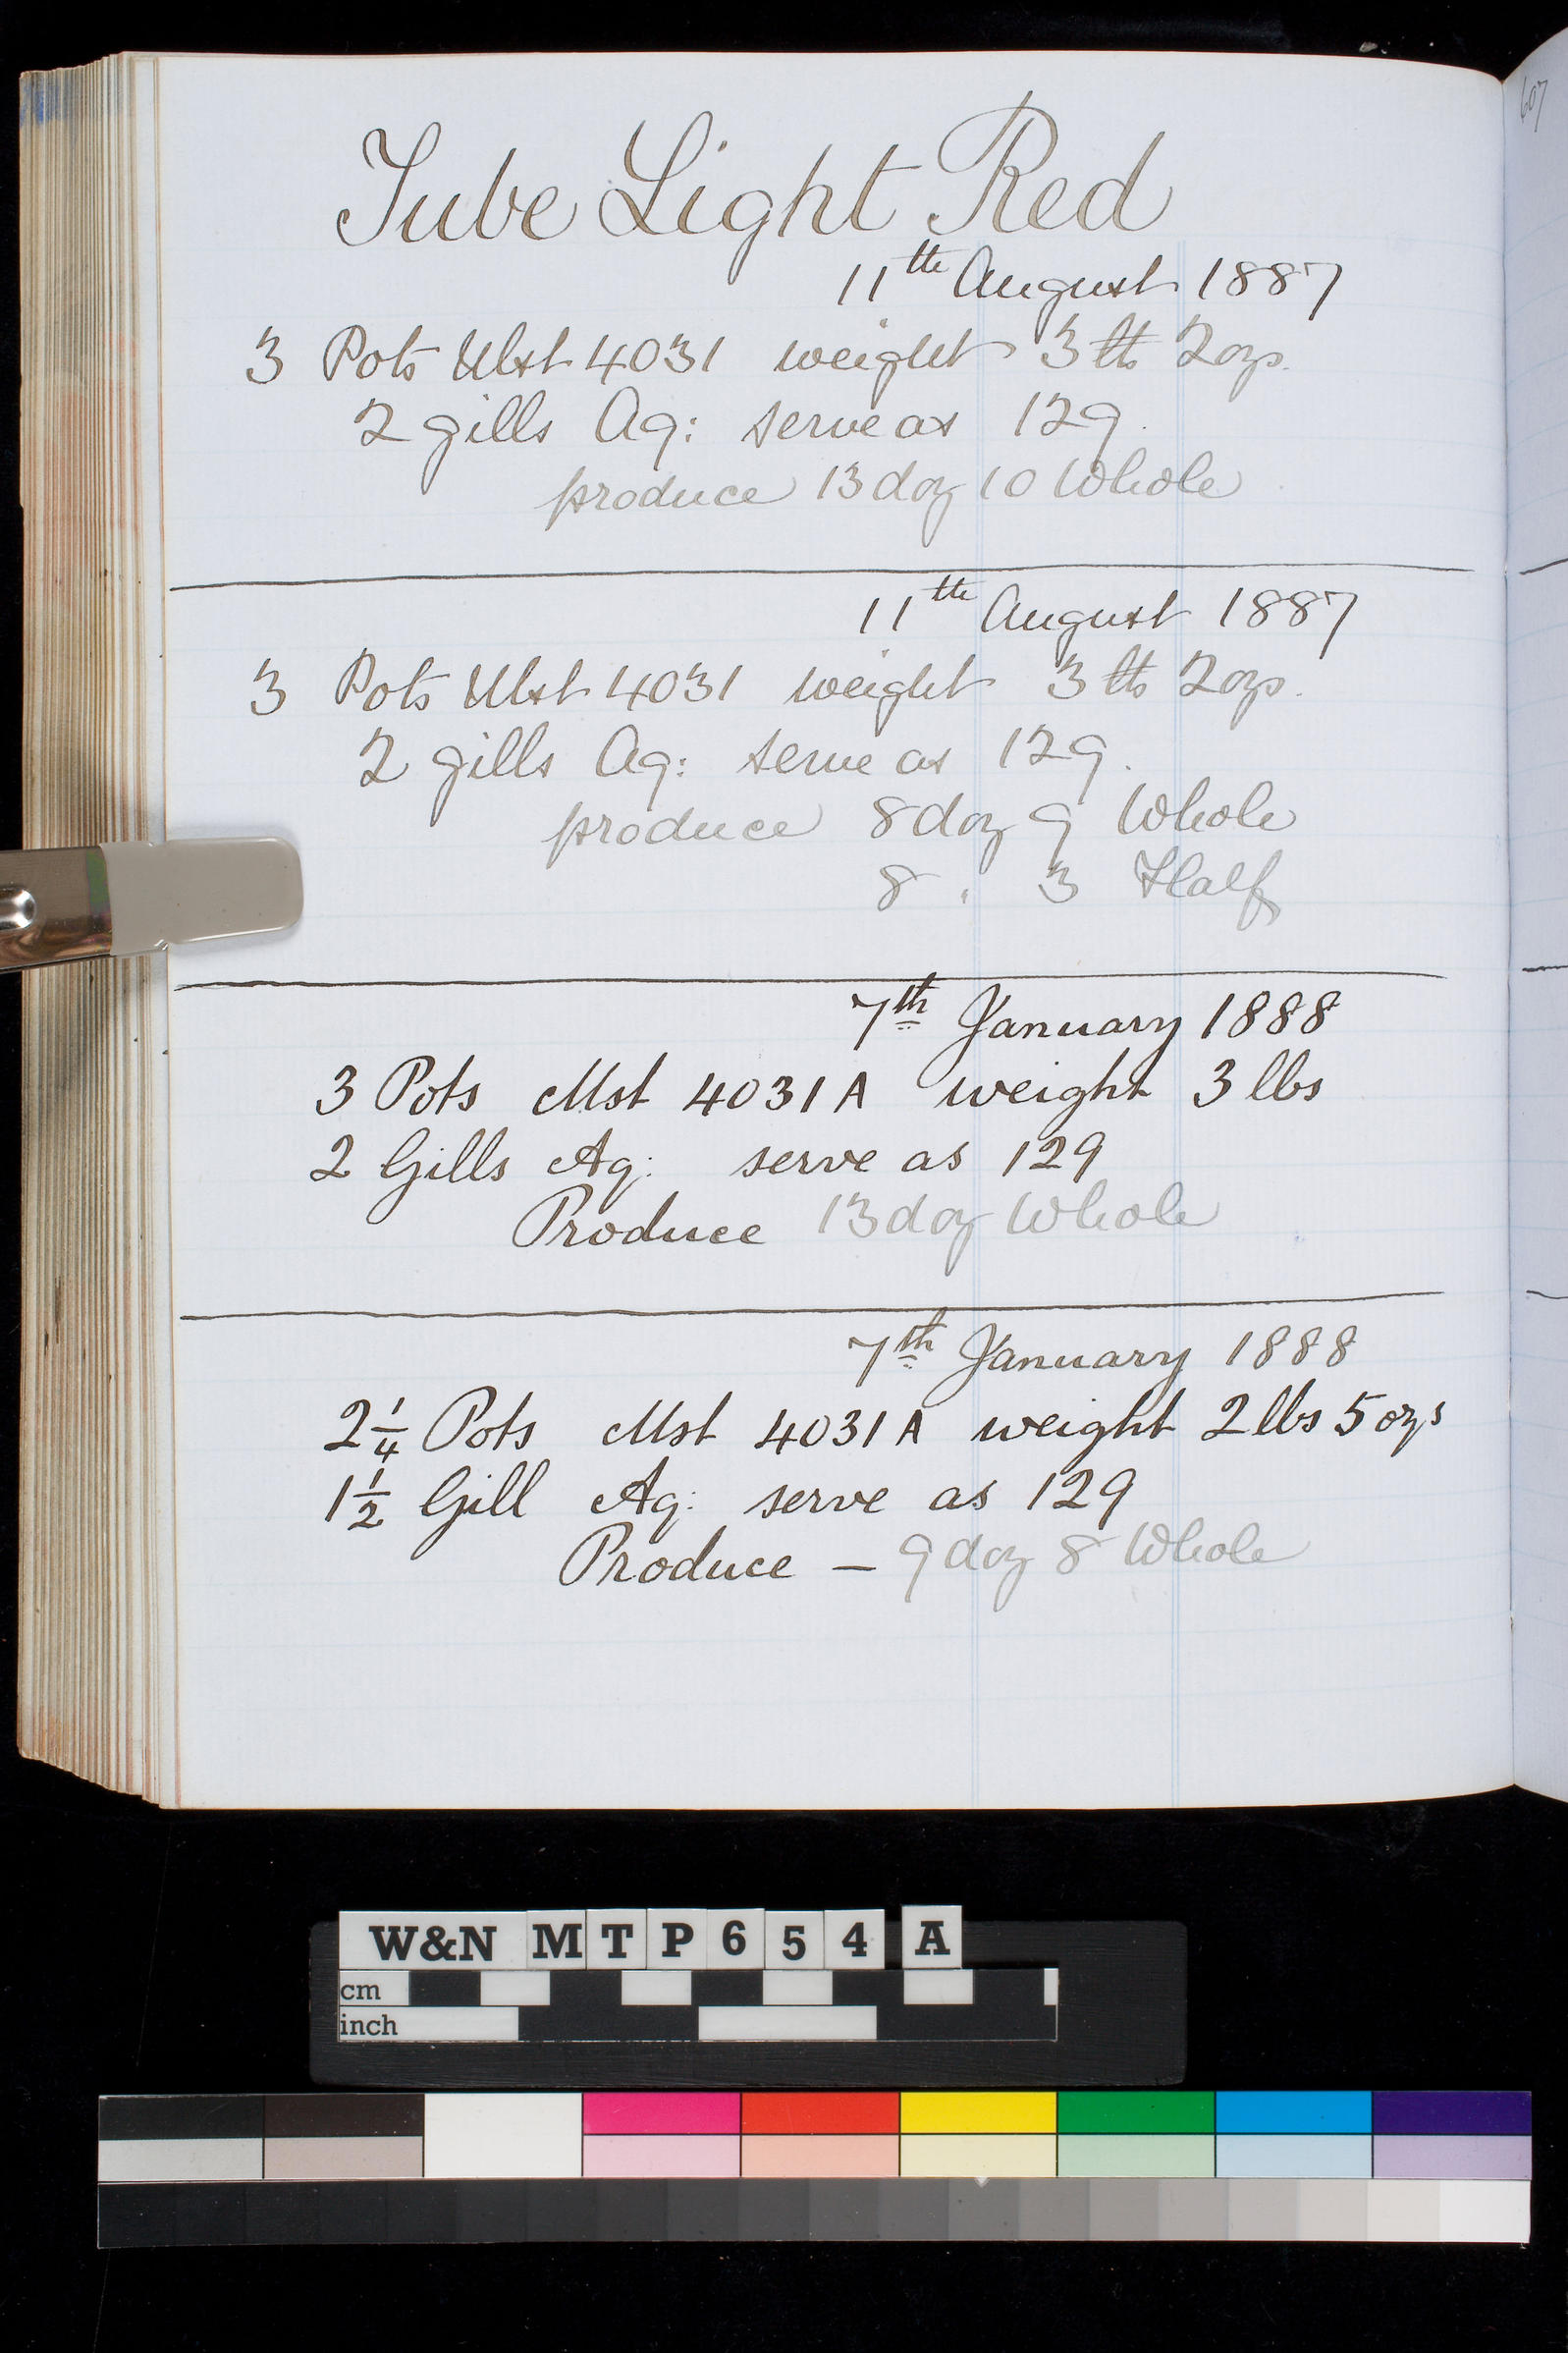 Tube Light Red
11th August 1887
3 Pots Mst 4031 weight 3 lb 2 ozs.
2 gills Aq: serve as 129.
produce 13 doz 10 Whole
11th August 1887
3 Pots Mst 4031 weight 3 lb 2 ozs.
2 gills Aq: serve as 129.
produce 8 doz 9 Whole
8 . 3 Half
7th January 1888
3 Pots Mst 4031 A weight 3 lbs
2 Gills Aq: serve as 129
Produce 13 doz Whole
7th January 1888
2 1/4 Pots Mst 4031 A weight 2 lbs 5 ozs
1 1/2 Gill Aq: serve as 129
Produce — 9 doz 8 Whole
607
W&N MTP654 A
cm
inch